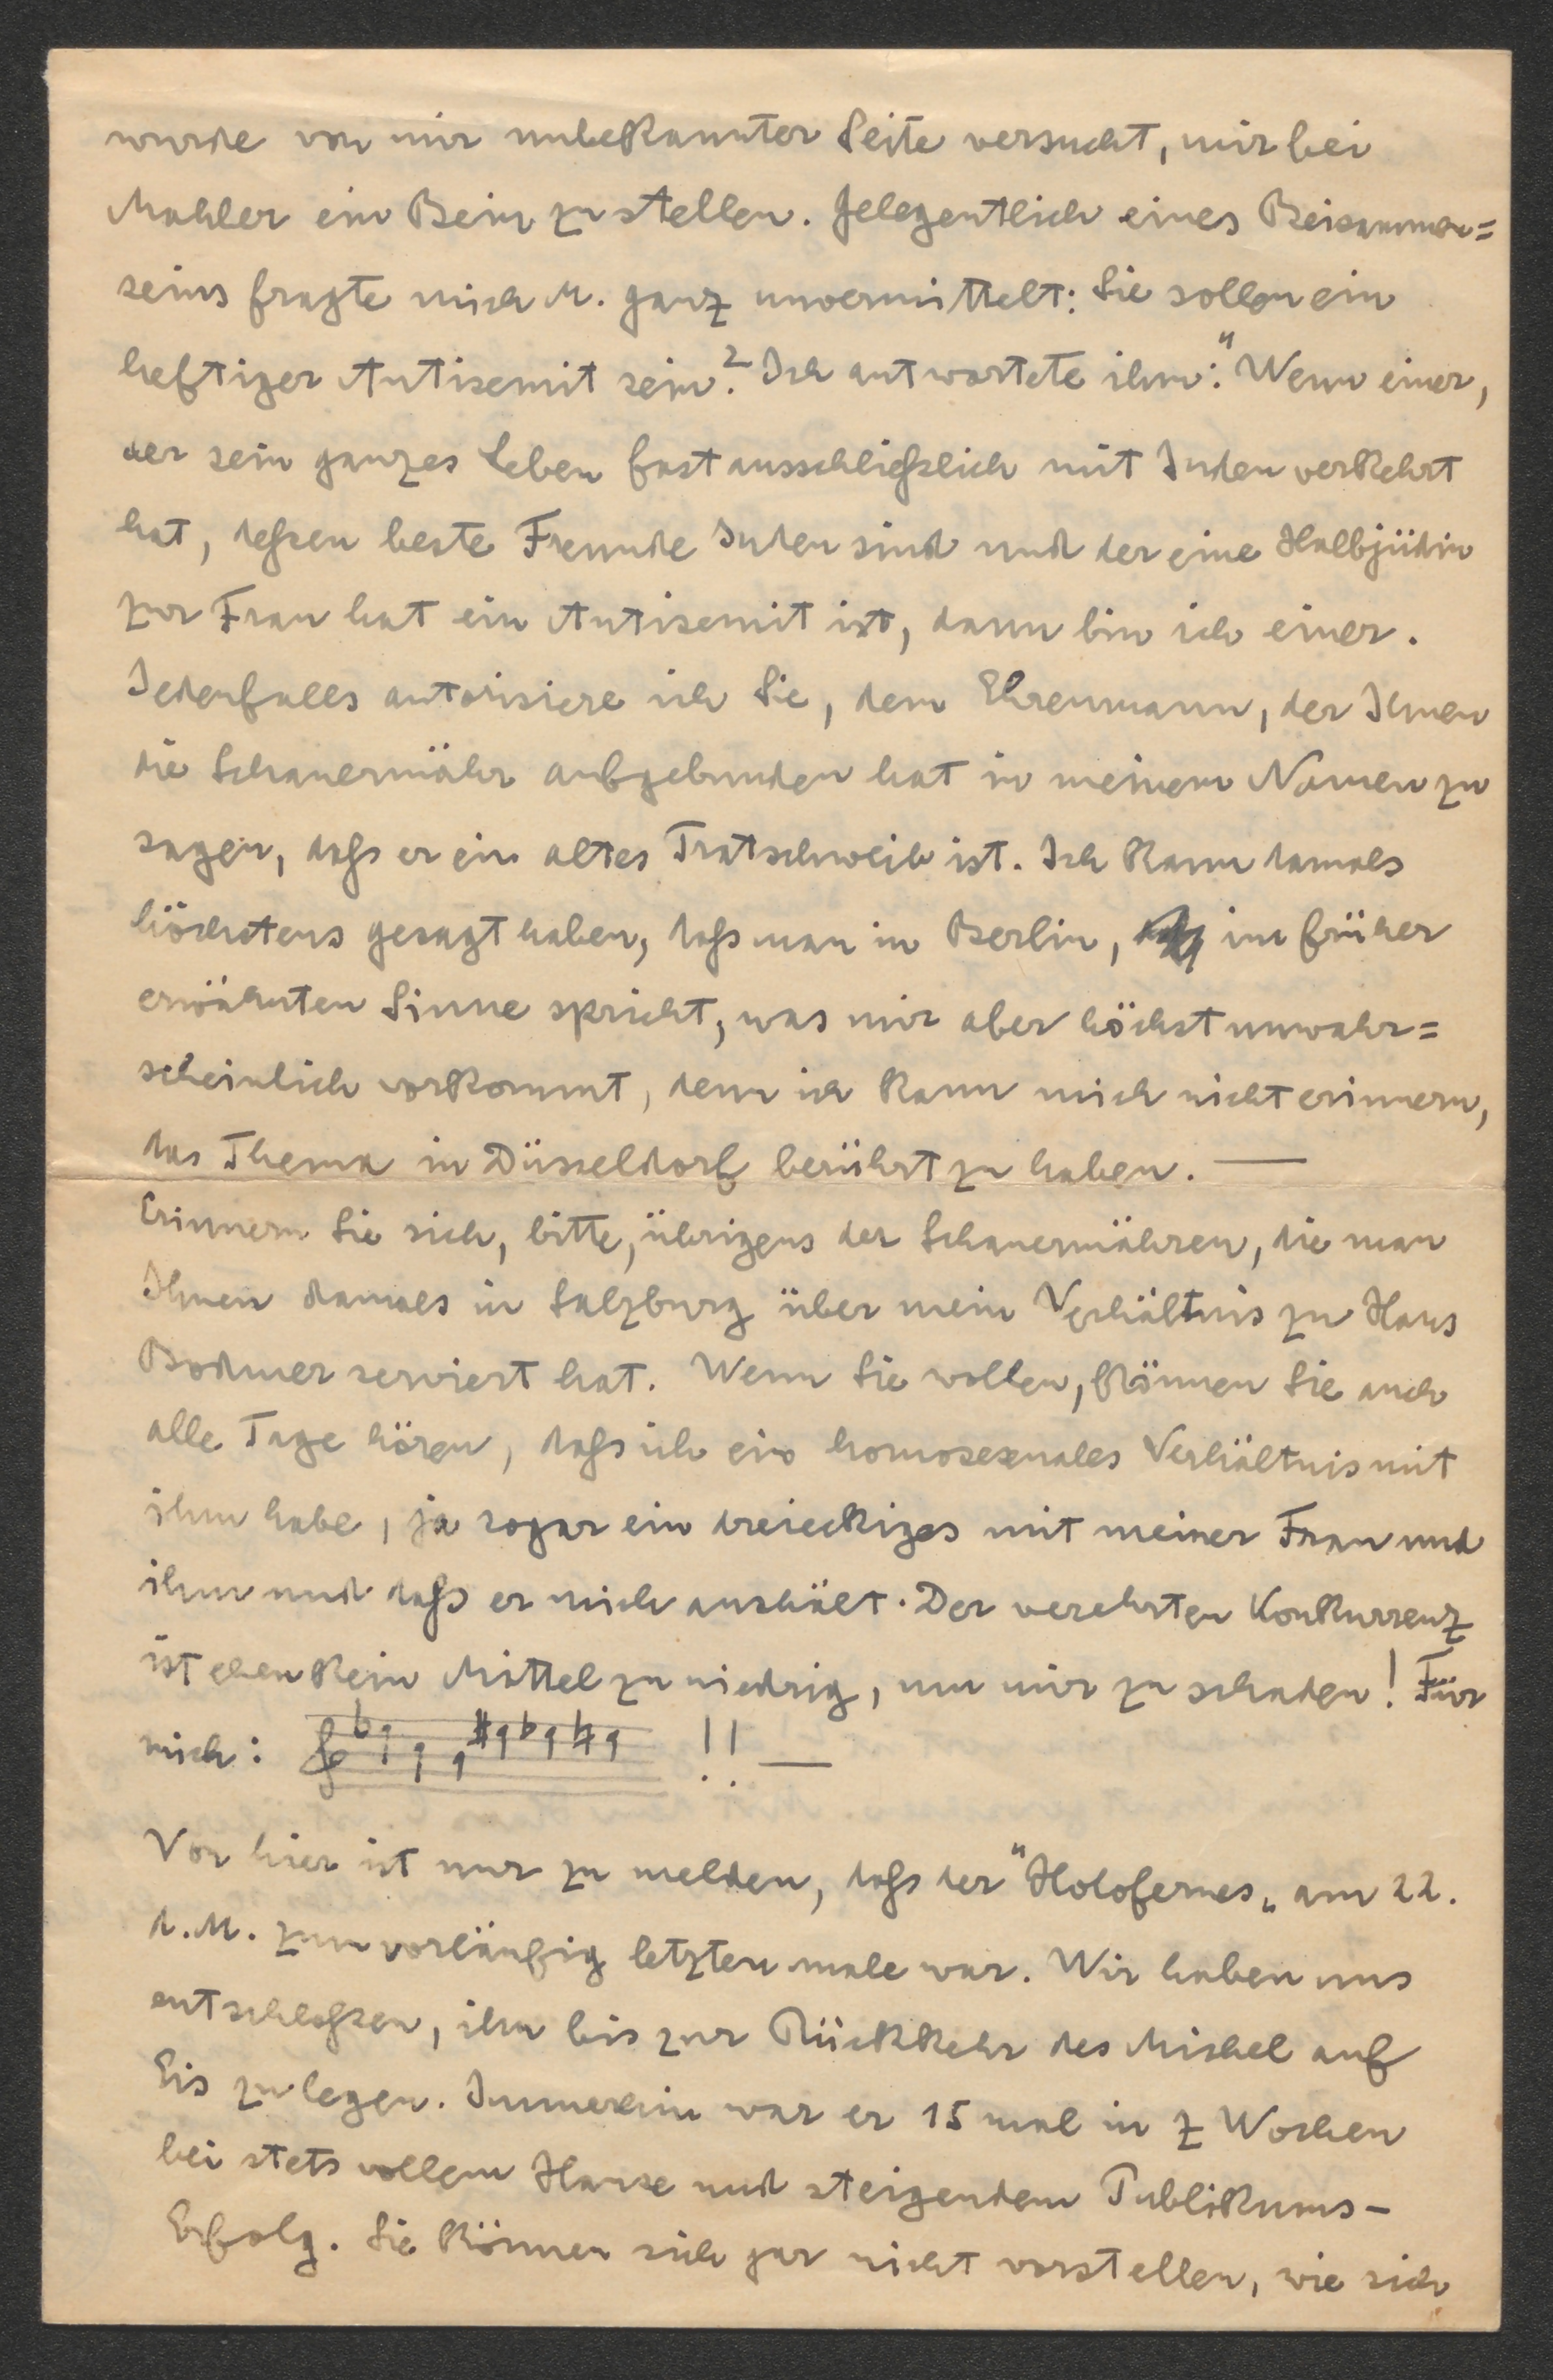 wurde von mir unbekannter Seite versucht, mir bei
Mahler ein Bein zu stellen. Gelegentlich eines Beisammen=
seins fragte mich M. ganz unvermittelt: Sie sollen ein
heftiger Antisemit sein? Ich antwortete ihm: "Wenn einer,
der sein ganzes Leben fast ausschließlich mit Juden verkehrt
hat, deßen beste Freunde Juden sind und der eine Halbjüdin
zur Frau hat ein Antisemit ist, dann bin ich einer.
Jedenfalls autorisiere ich Sie, dem Ehrenmann, der Ihnen
die Schauermähr aufgebunden hat in meinem Namen zu
sagen, daß er ein altes Tratschweib ist. Ich kann damals
höchstens gesagt haben, daß man in Berlin, im früher
erwähnten Sinne spricht, was mir aber höchst unwahr=
scheinlich vorkommt, denn ich kann mich nicht erinnern,
das Thema in Düsseldorf berührt zu haben. —
Erinnern Sie sich, bitte, übrigens der Schauermähren, die man
Ihnen damals in Salzburg über mein Verhältnis zu Hans
Bodmer serviert hat. Wenn Sie wollen, können Sie auch
alle Tage hören, daß ich ein homosexuales Verhältnis mit
ihm habe, ja sogar ein dreieckiges mit meiner Frau und
ihm und daß er mich aushält. Der verehrten Konkurrenz
ist eben kein Mittel zu niedrig, um mir zu schaden! Für
mich: !! —
Von hier ist nur zu melden, daß der "Holofernes" am 22.
d.M. zum vorläufig letzten male war. Wir haben uns
entschloßen, ihn bis zur Rückkehr des Michel auf
Eis zu legen. Immerhin war er 15 mal in 7 Wochen
bei stets vollem Hause und steigendem Publikums-
Erfolg. Sie können sich gar nicht vorstellen, wie sich